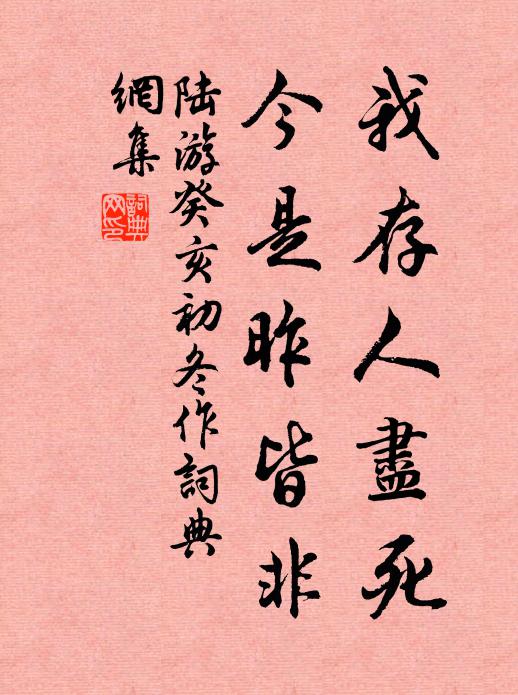 我存人盡死
今是昨皆非
陸游癸亥初冬作詞典
網集
詞典
网印